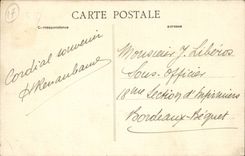 CARTE POSTALE
Correspondance
Adresse
Cordial souvenir
Monsieur J. Libéros
Sous-Officier
18me Section d'Infirmiers
Bordeaux-Béquet